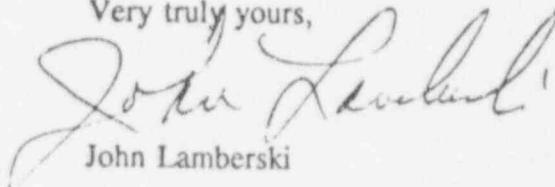 Very truly yours,
John Lamberski
John Lamberski